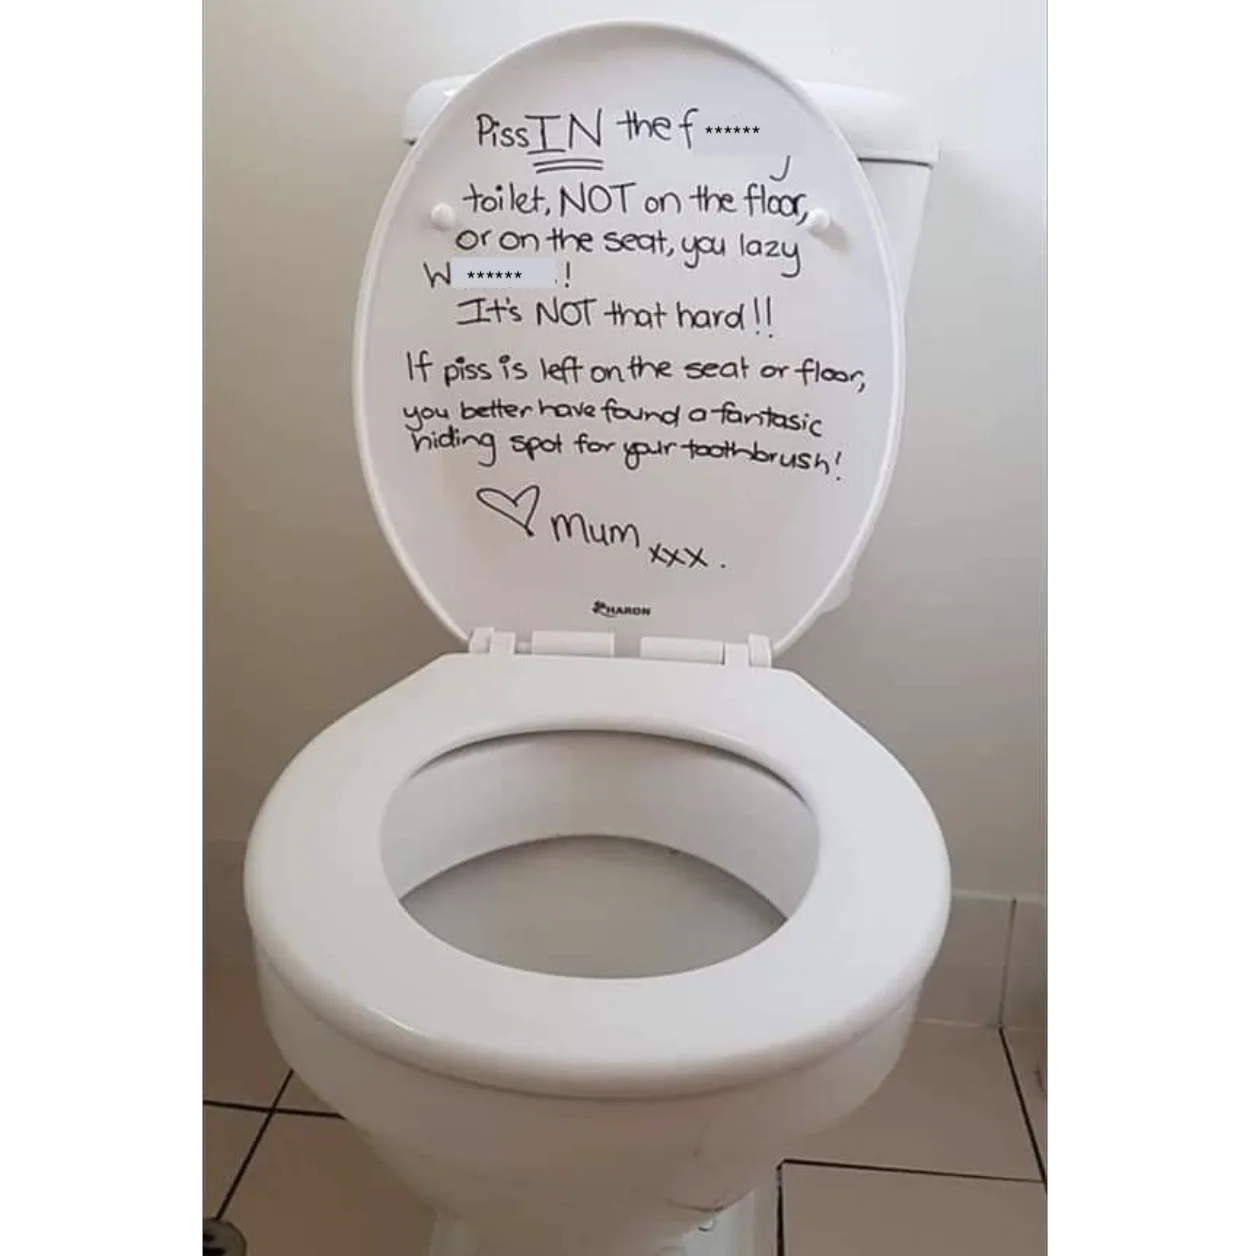 Piss IN the f ******
toilet, NOT on the floor,
or on the seat, you lazy
W ****** !
It's NOT that hard!!
If piss is left on the seat or floor,
you better have found a fantasic
hiding spot for your toothbrush!
♡ Mum xxx.
HARON